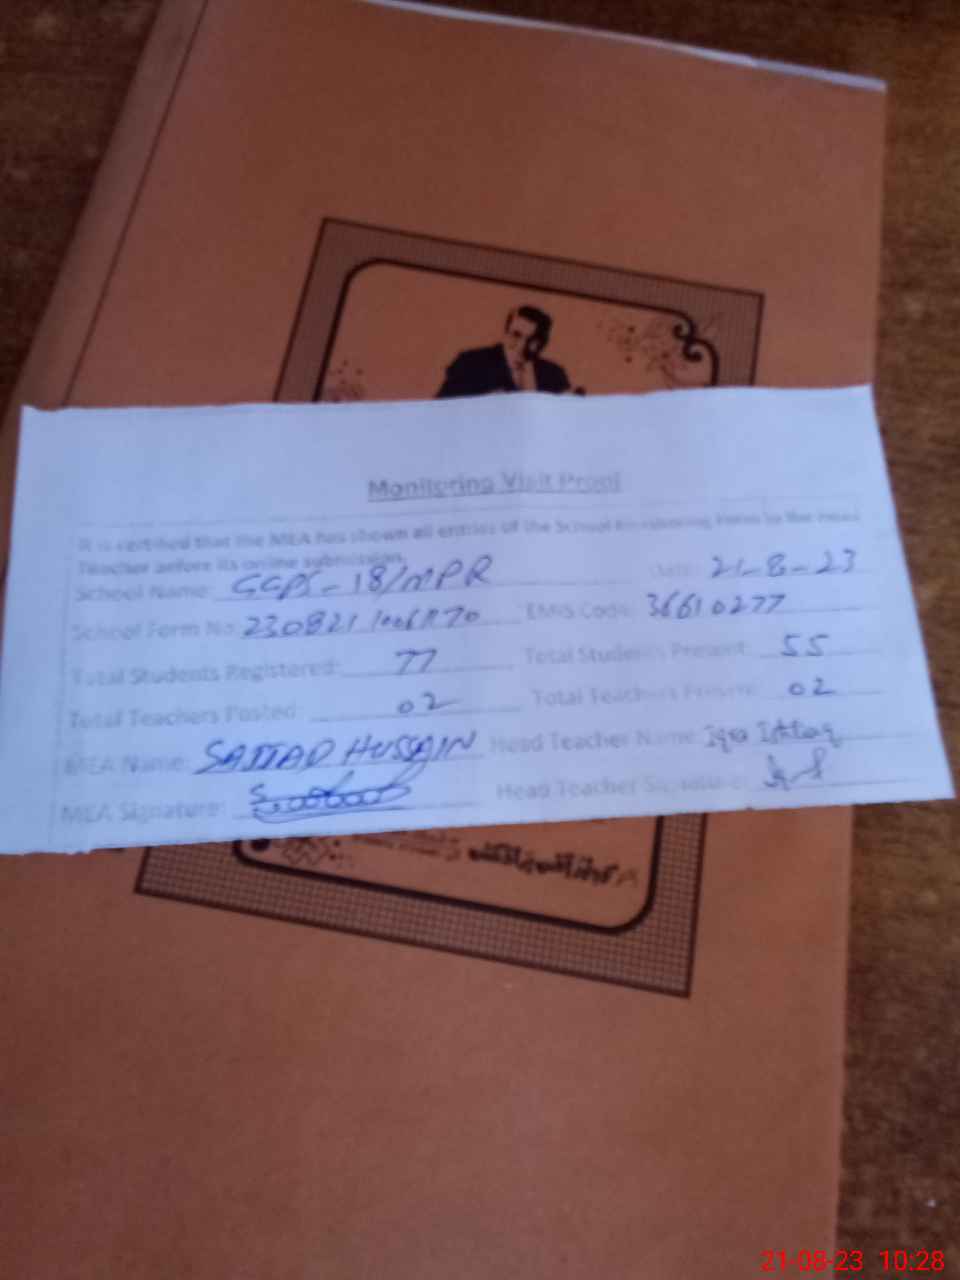 Monitoring Visit Proof
It is certified that the MEA has shown all entries of the School Monitoring Form to the Head
Teacher before its online submission.
School Name: GGPS - 18/MPR Date: 21-8-23
School Form No: 230821 EMIS Code: 36610277
Total Students Registered: 77 Total Students Present: 55
Total Teachers Posted: 02 Total Teachers Present: 02
MEA Name: SAJJAD HUSSAIN Head Teacher Name: Iqra
MEA Signature: Head Teacher Signature:
21-08-23 10:28